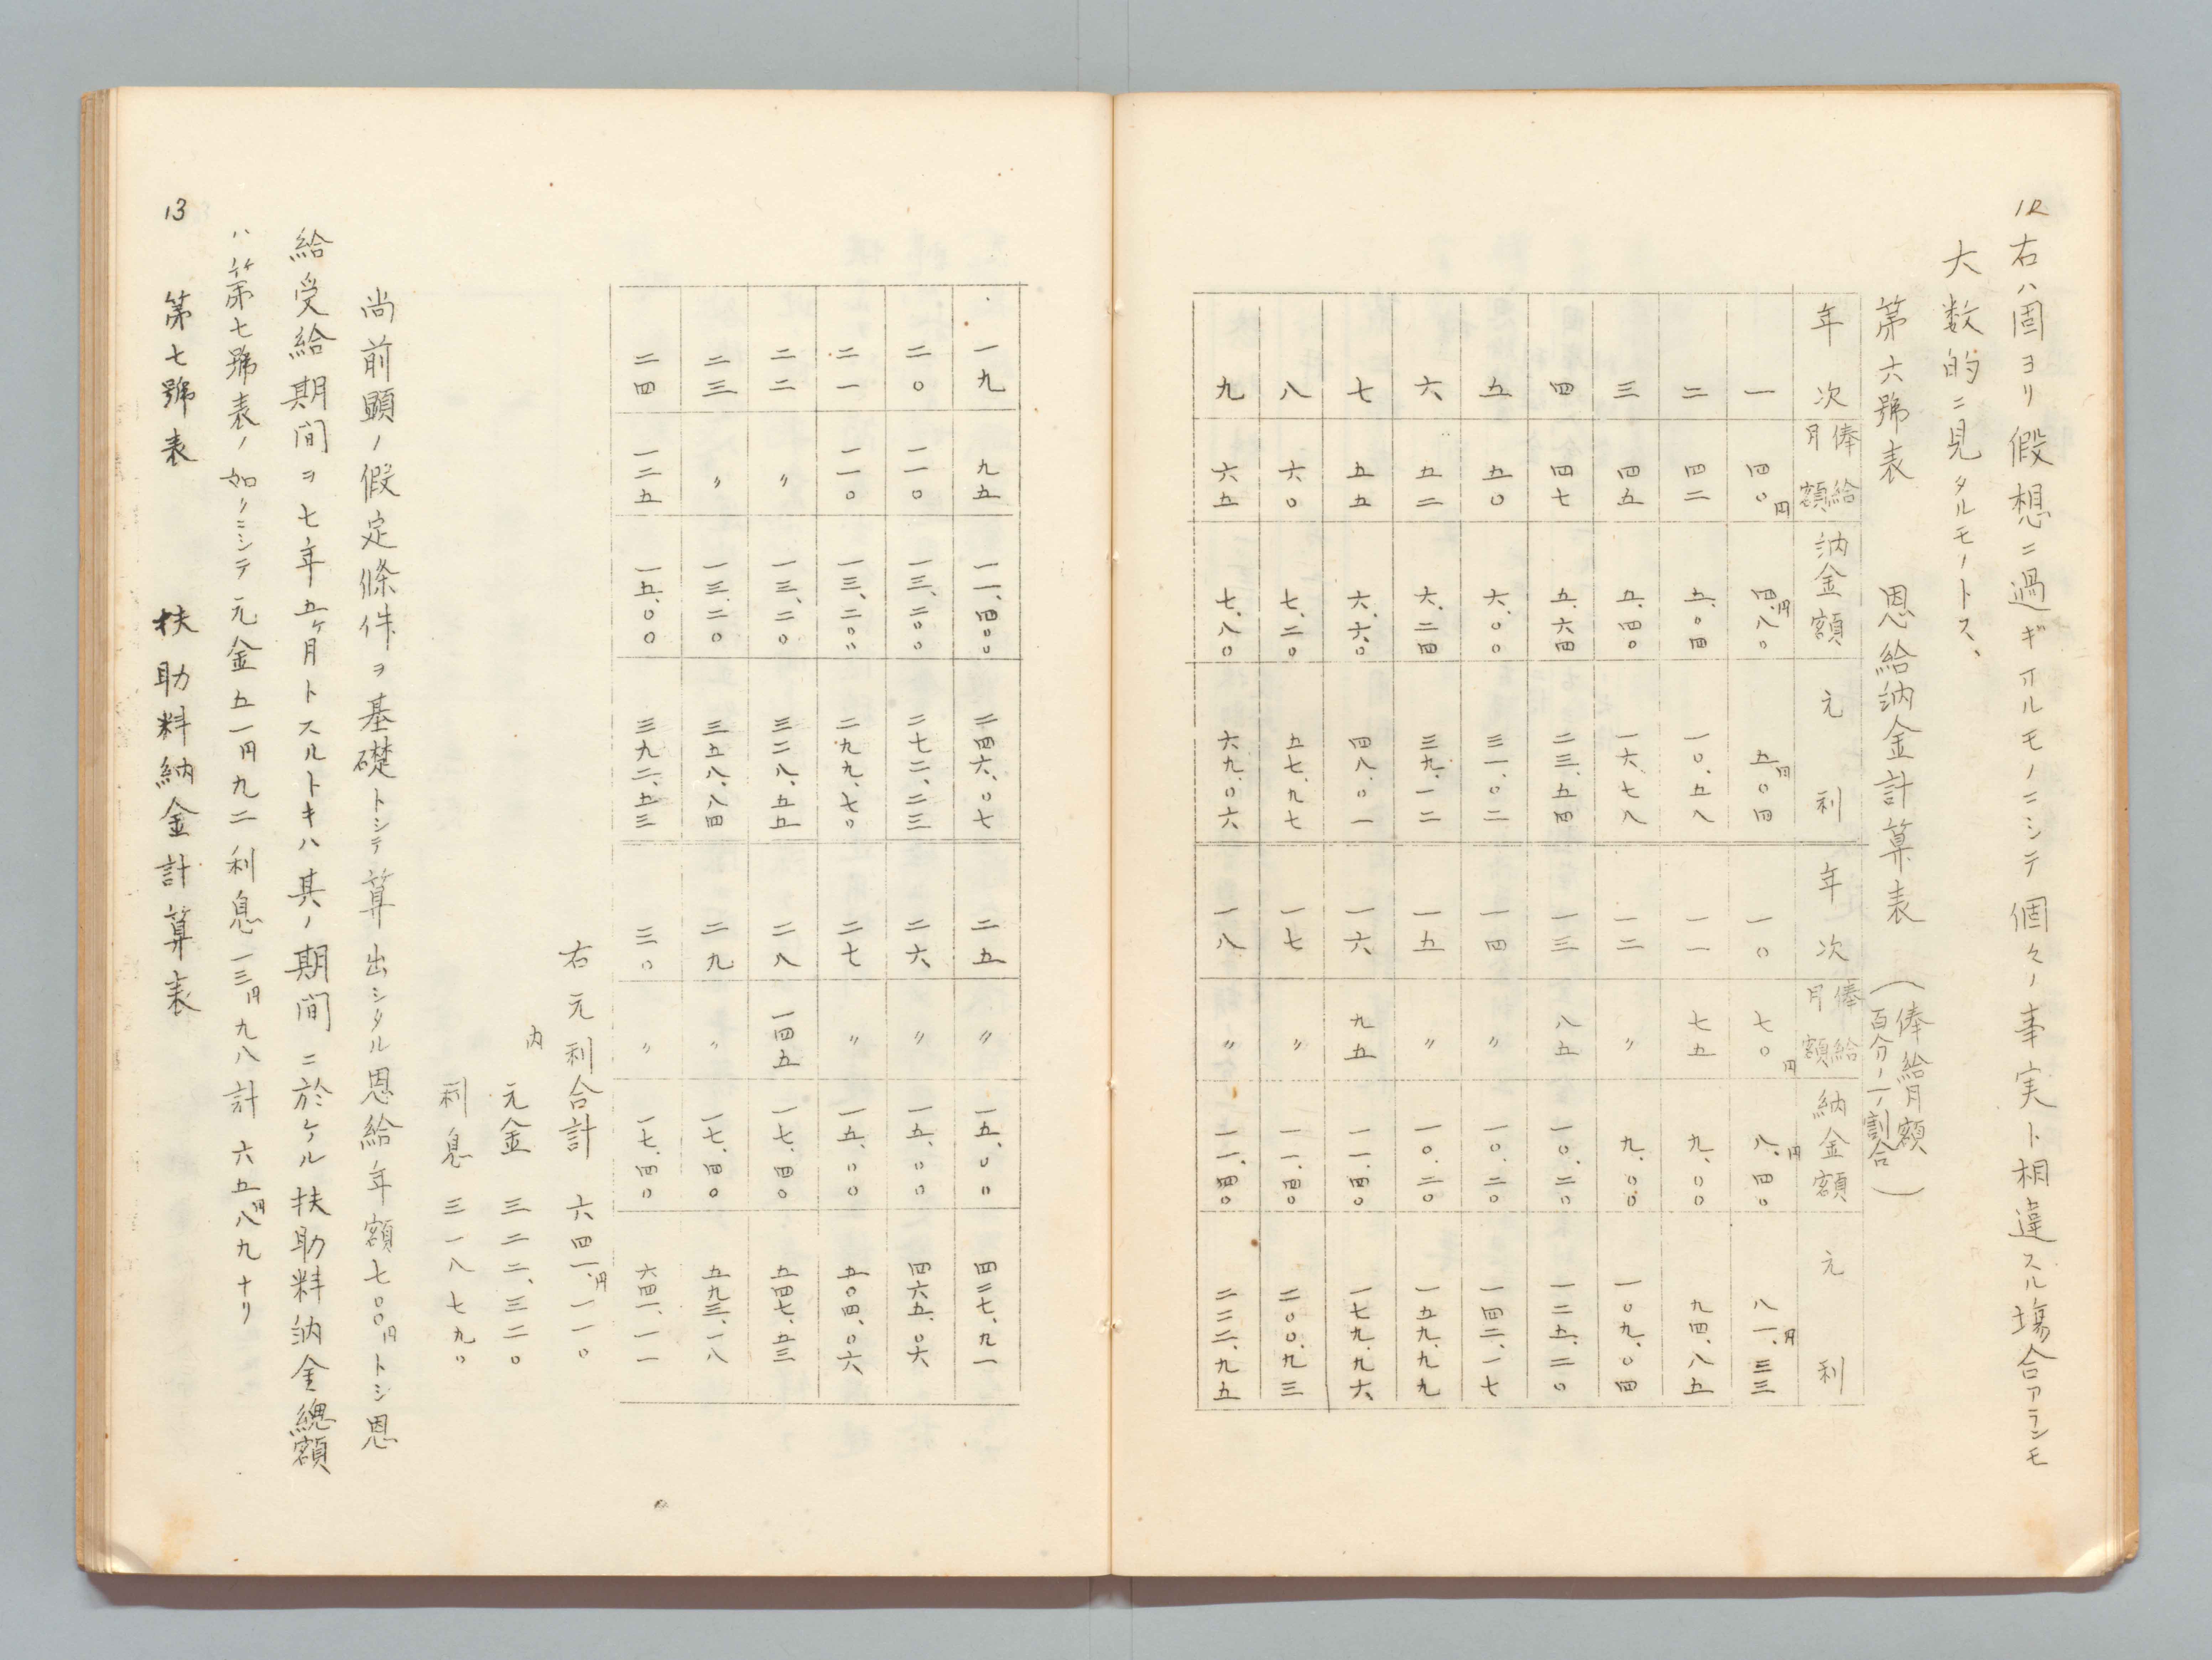 12
右ハ固ヨリ假想ニ過ギオルモノニシテ個々ノ事実ト相違スル場合アランモ
大数的ニ見タルモノトス、
第六號表　恩給納金計算表（俸給月額百分ノ一ノ割合）
年次　俸給月額　納金額　元利　年次　俸給月額　納金額　元利
一　四〇円　四.円八〇　五円〇四　一〇　七〇円　八.円四〇　八一.円三三
二　四二　五.〇四　一〇.五八　一一　七五　九.〇〇　九四.八五
三　四五　五.四〇　一六.七八　一二　〃　九.〇〇　一〇九.〇四
四　四七　五.六四　二三.五四　一三　八五　一〇.二〇　一二五.二〇
五　五〇　六.〇〇　三一.〇二　一四　〃　一〇.二〇　一四二.一七
六　五二　六.二四　三九.一二　一五　〃　一〇.二〇　一五九.九九
七　五五　六.六〇　四八.〇一　一六　九五　一一.四〇　一七九.九六
八　六〇　七.二〇　五七.九七　一七　〃　一一.四〇　二〇〇.九三
九　六五　七.八〇　六九.〇六　一八　〃　一一.四〇　二二二.九五
一九　九五　一一.四〇〇　二四六.〇七　二五　〃　一五.〇〇　四二七.九一
二〇　一一〇　一三.二〇〇　二七二.二三　二六　〃　一五.〇〇　四六五.〇六
二一　一一〇　一三.二〇〃　二九九.七〇　二七　〃　一五.〇〇　五〇四.〇六
二二　〃　一三.二〇　三二八.五五　二八　一四五　一七.四〇　五四七.五三
二三　〃　一三.二〇　三五八.八四　二九　〃　一七.四〇　五九三.一八
二四　一二五　一五.〇〇　三九二.五三　三〇　〃　一七.四〇　六四一.一一
右元利合計　六四一.円一一〇
内　元金　三二二.三二〇
利息　三一八七九〇
尚前顕ノ假定條件ヲ基礎トシテ算出シタル恩給年額七〇〇円トシ恩
給受給期间ヲ七年五ヶ月トスルトキハ其ノ期间ニ於ケル扶助料納金總額
ハ第七號表ノ如クニシテ元金五一円九二利息一三円九八計六五円八九ナリ
13
第七號表　扶助料納金計算表